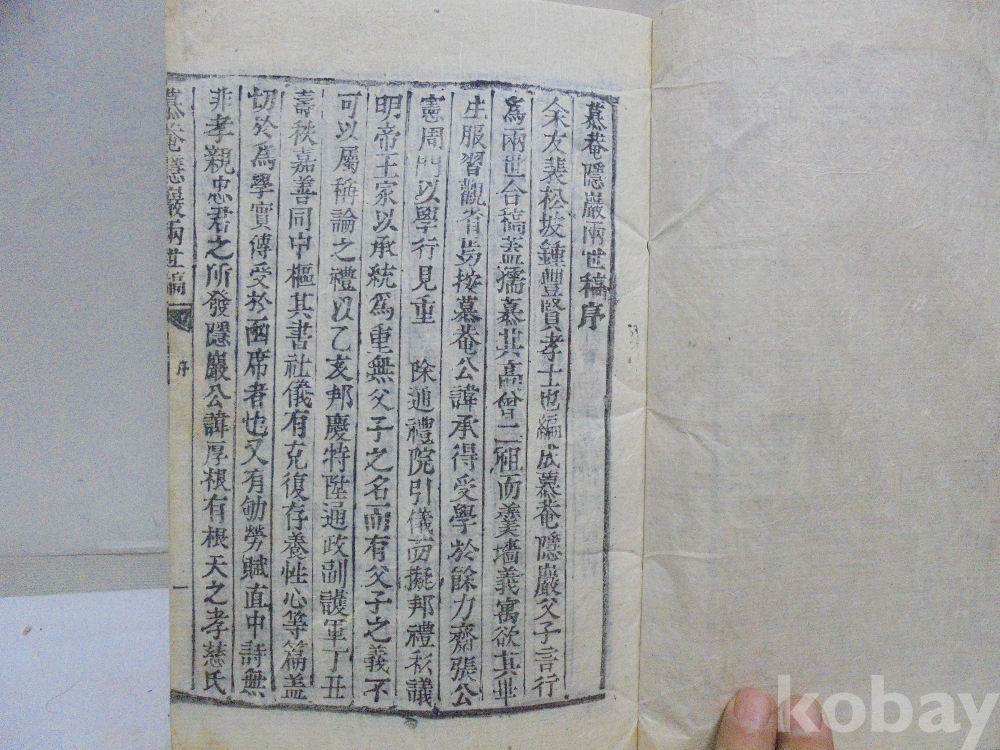 慕菴隱巖兩世稿序
余友裴松坡鍾豐賢孝士也編成慕菴隱巖父子言行
為兩世合稿蓋孺慕其高曾二祖而羹墻義寓欲其畢
生服習觀省焉按慕菴公諱承得受學於餘力齋張公
憲周門以學行見重 除通禮院引儀而擬邦禮私議
明帝王家以承統為重無父子之名而有父子之義不
可以屬稱論之禮以乙亥邦慶特陞通政副護軍丁丑
壽秩嘉善同中樞其書社儀有克復存養性心等篇蓋
切於為學實傳受於函席者也又有劬勞賦直中詩無
非孝親忠君之所發隱巖公諱厚根有根天之孝慈氏
慕菴隱巖兩世稿 序 一
kobay